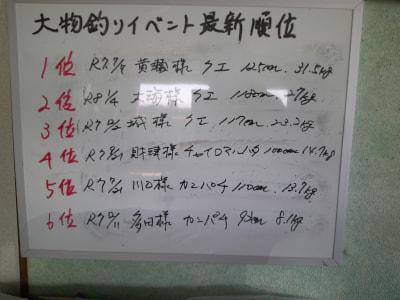 大物釣りイベント最新順位
1位 R7 様 クエ 125cm 31.5kg
2位 R8 1/4 大海様 クエ 118cm 27kg
3位 R7 城様 クエ 117cm kg
4位 R7 財津様 100cm 14.7kg
5位 R7 川口様 カンパチ 110cm 13.7kg
6位 R7 多田様 カンパチ 92cm 8.1kg